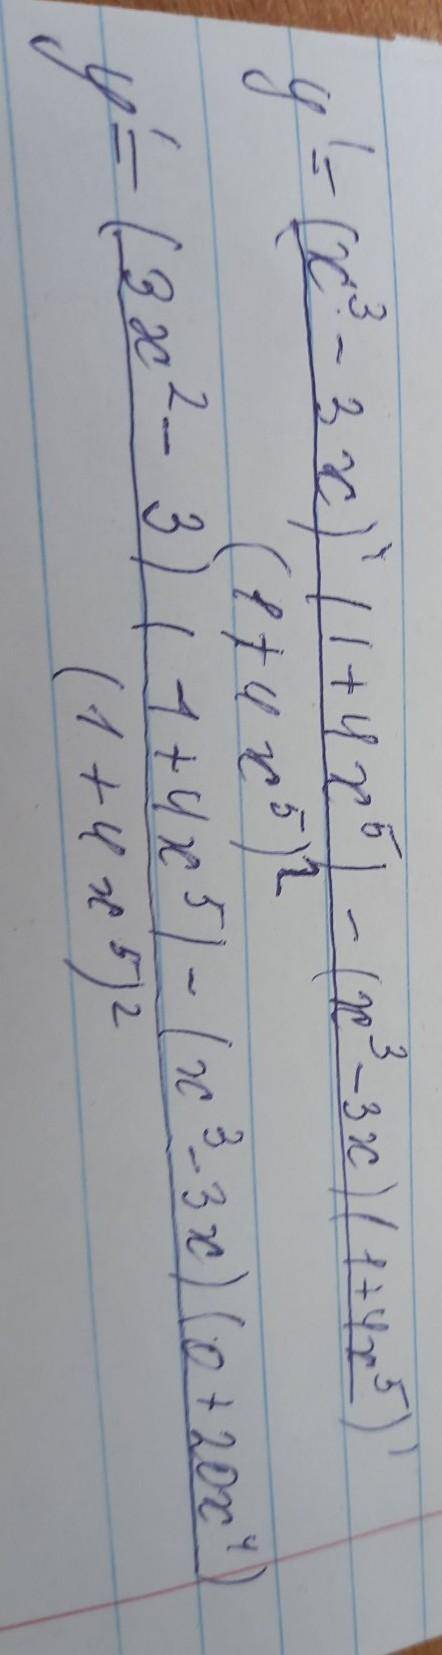 y' = (x³ - 3x)' (1 + 4x⁵) - (x³ - 3x)(1 + 4x⁵)'
(1 + 4x⁵)²
y' = (3x² - 3)(1 + 4x⁵) - (x³ - 3x)(0 + 20x⁴)
(1 + 4x⁵)²